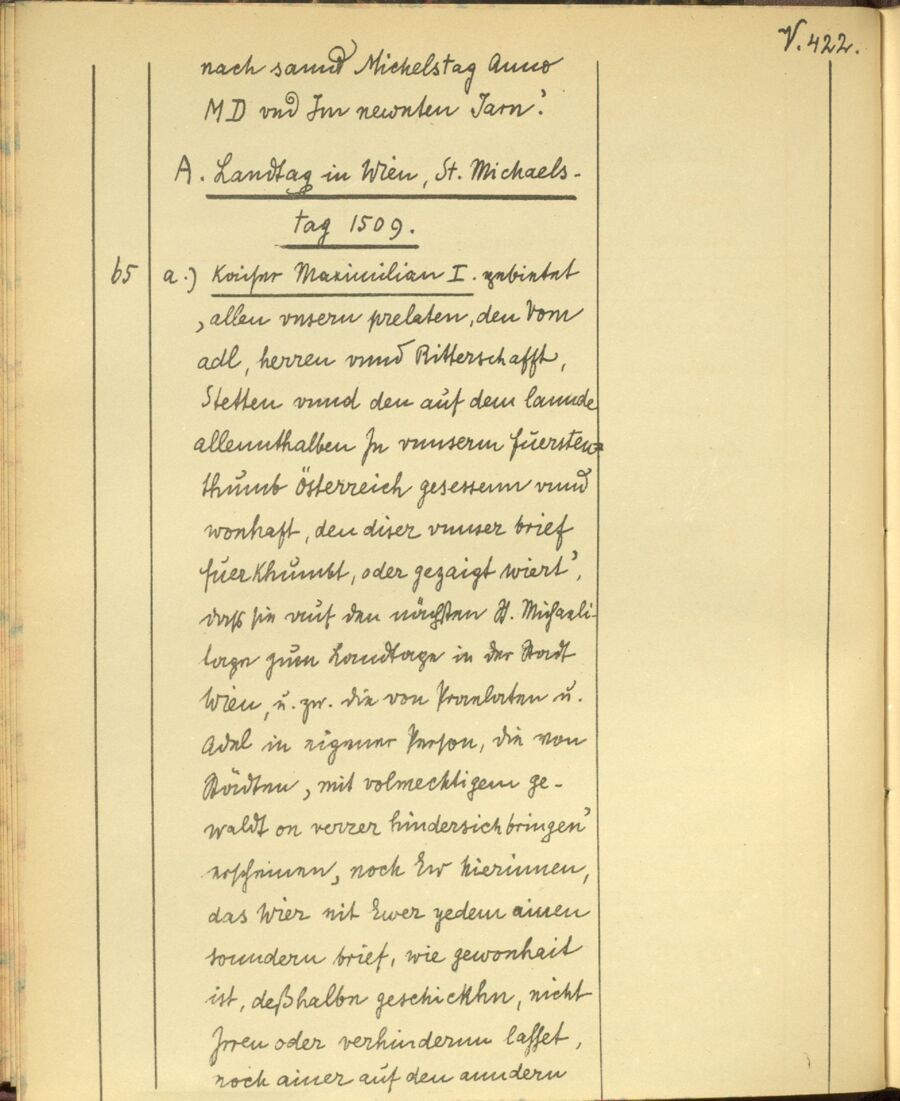 V. 422.
nach sannd Michelstag Anno
MD vnd Im newnten Jarn'.
A. Landtag in Wien, St. Michaels-
tag 1509.
65 a.) Kaiser Maximilian I. gebietet
‚allen vnsern prelaten, den Vom
adl, herren vnnd Ritterschafft,
Stetten vnnd den auf dem lannde
allennthalben In vnnserm fuersten=
thumb Österreich gesessenn vnnd
wonhaft, den diser vnnser brief
fuerkhumbt, oder gezaigt wiert',
daß sie auf den nächsten St. Michaeli-
tage zum Landtage in der Stadt
Wien, u. zw. die von Praelaten u.
Adel in eigener Person, die von
Städten ‚mit volmechtigem ge-
waldt on verrer hindersichbringen'
erscheinen, ‚noch Ew hierinnen,
das Wier nit Ewer yedem ainen
sonndern brief, wie gewonhait
ist, deßhalbn geschickhn, nicht
Irren oder verhindernn lasset,
noch ainer auf den anndern